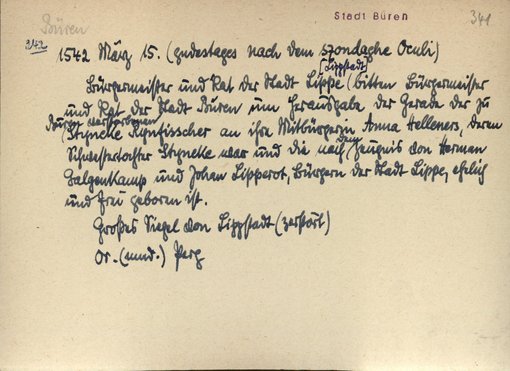 Büren
Stadt Büren
341
342
1542 März 15. (gudestages nach dem szondache Oculi)
[Lippstadt]
Bürgermeister und Rat der Stadt Lippe (bitten Bürgermeister
und Rat der Stadt Büren um Herausgabe der Gerade der zu
Büren verstorbenen
Stynecke an ihre Mitbürgerin Anna Helleners, deren
Schwestertochter Stynecke war und die nach dem Zeugnis von Herman
Galgenkamp und Johan Lipperot, Bürgern der Stadt Lippe, ehelich
und frei geboren ist.
Großes Siegel von Lippstadt (zerstört)
Or. (mnd.) Perg